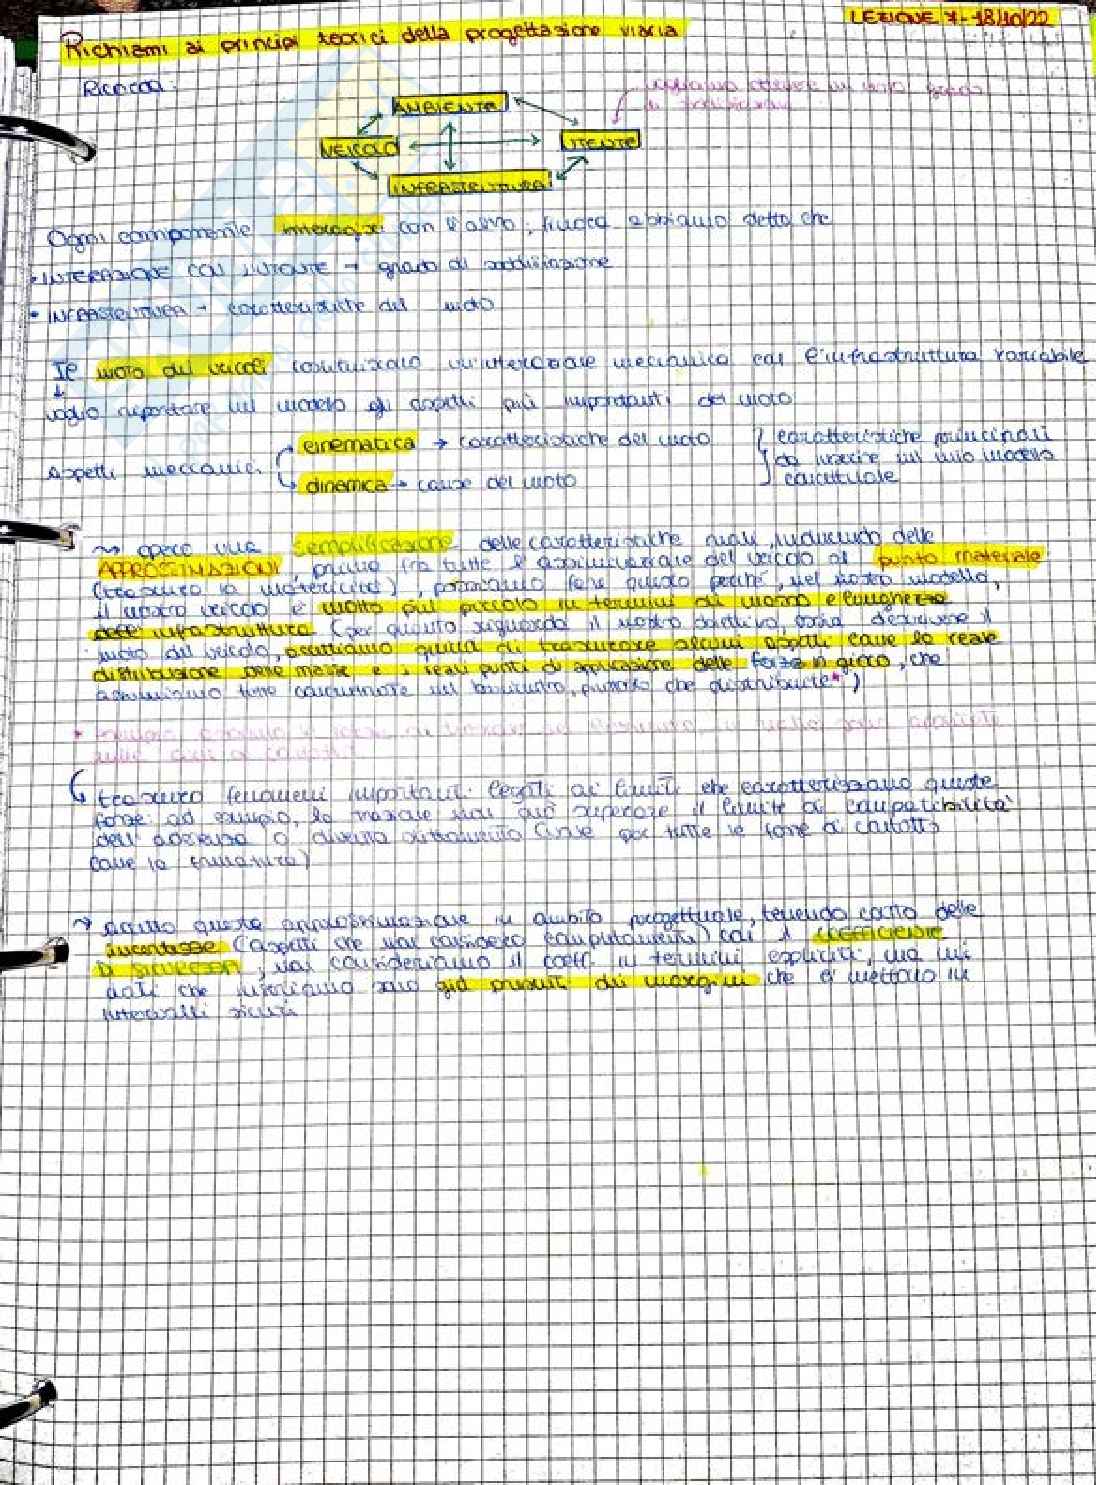 LEZIONE 7 - 18/10/22
Richiami ai principi teorici della progettazione viaria
Ricorda:
AMBIENTE
VEICOLO
UTENTE
INFRASTRUTTURA
Ogni componente interagisce con l'altro; finora abbiamo detto che
• INTERAZIONE CON L'UTENTE → grado di soddisfazione
• INFRASTRUTTURA → caratteristiche del moto
Il moto dei veicoli meccanica con l'infrastruttura variabile
↓
voglio riportare nel modello gli aspetti più importanti del moto
aspetti meccanici
cinematica → caratteristiche del moto
dinamica → cause del moto
caratteristiche principali
da inserire nel mio modello
concettuale
⤳ opero una semplificazione delle caratteristiche reali, inducendo delle
APPROSSIMAZIONI, prima fra tutte l'assimilazione del veicolo al punto materiale
(trascuro la), possiamo fare questo perché, nel nostro modello,
il nostro veicolo è molto più piccolo in termini di massa e lunghezza
dell'infrastruttura (per quanto riguarda il nostro obiettivo, ossia descrivere il
moto del veicolo, accettiamo quindi di trascurare alcuni aspetti come la reale
distribuzione delle masse e i reali punti di applicazione delle forze in gioco, che
assumiamo tutte concentrate nel baricentro, piuttosto che distribuite*)
trascuro fenomeni importanti legati ai limiti che caratterizzano queste
forze: ad esempio, la trazione non può superare il limite di compatibilità
dell'aderenza o
come la frenatura)
⤳ accetto questa approssimazione in ambito progettuale, tenendo conto delle
incertezze (aspetti che non conosco completamente) con il coefficiente
di sicurezza, non consideriamo il coeff. in termini espliciti, ma nei
dati che sono già presenti dei margini che ci mettono in
intervalli sicuri